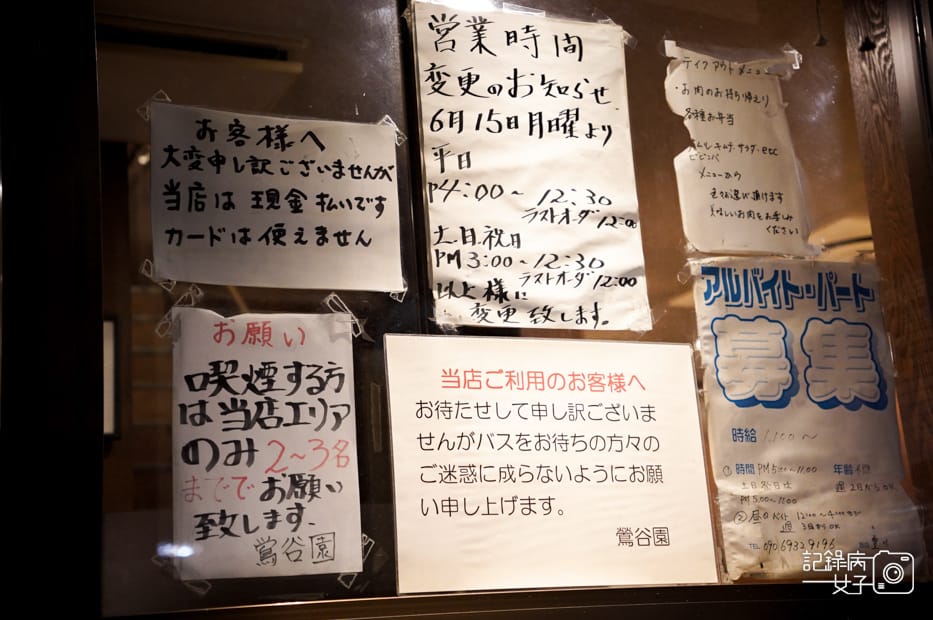 お客様へ
大変申し訳ございませんが
当店は現金払いです
カードは使えません
営業時間
変更のお知らせ
6月15日月曜より
平日
PM4:00～12:30
ラストオーダ12:00
土日祝日
PM3:00～12:30
ラストオーダ12:00
以上様に
変更致します。
テイクアウトメニュー
・お肉のお持ち帰えり
各種お弁当
ナムル キムチ サラダ・etc
ビビンバ
メニューから
美味しいお肉をお楽しみ
ください
お願い
喫煙する方
は当店エリア
のみ2～3名
まででお願い
致します。
鶯谷園
当店ご利用のお客様へ
お待たせして申し訳ございま
せんがバスをお待ちの方々の
ご迷惑に成らないようにお願
い申し上げます。
鶯谷園
アルバイト・パート
募集
時給 1,100～
①時間 PM5:00～11:00 年齢不問
土日祝日は 週2日からOK
PM5:00～11:00
週3日からOK
TEL 090 6932 9196
記錄病
女子